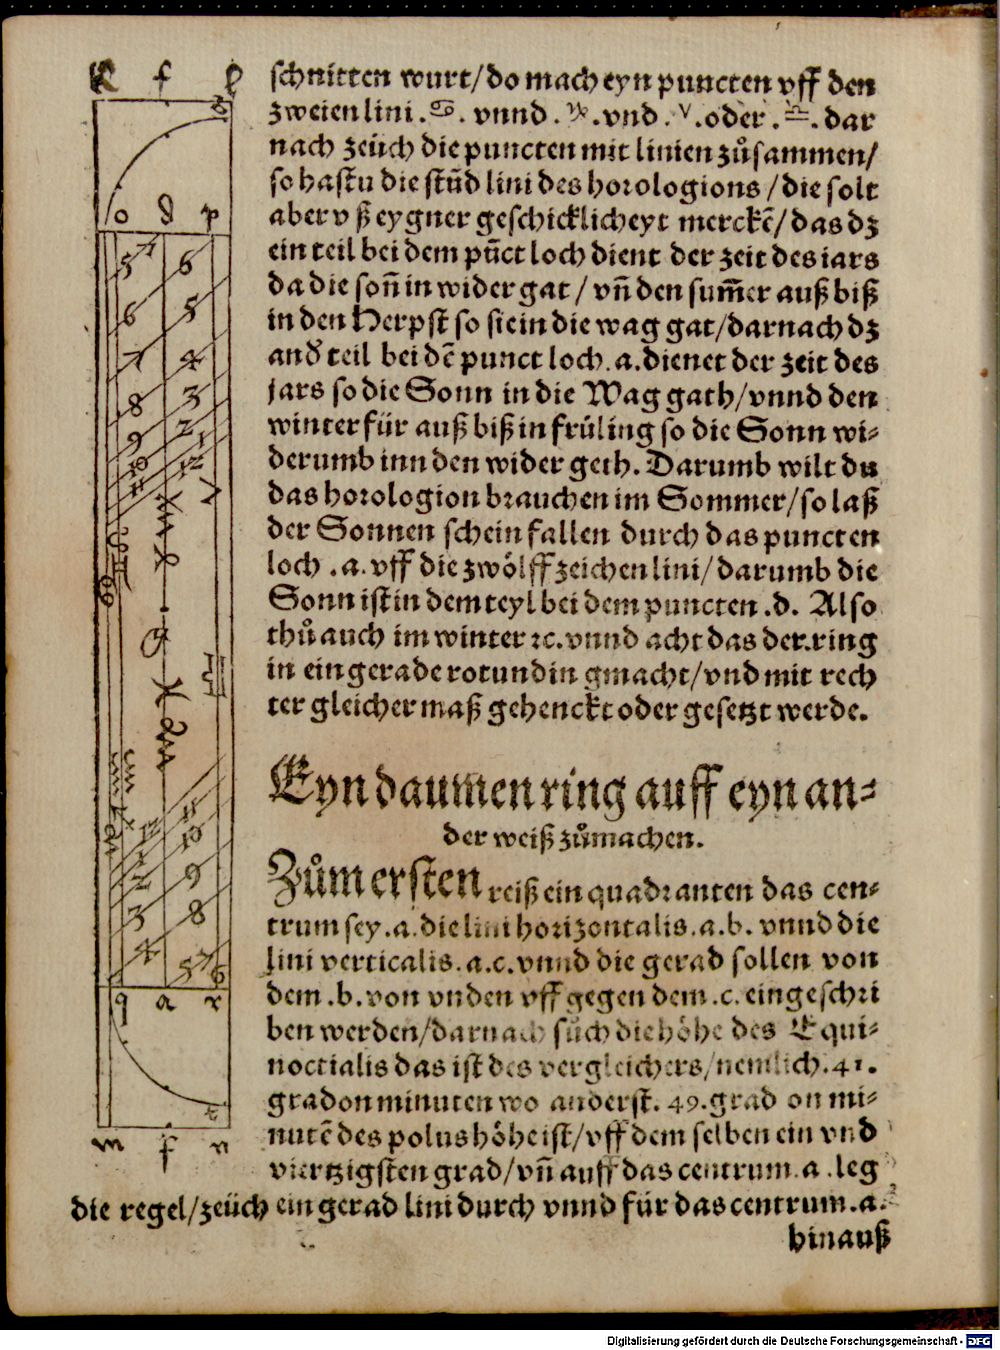 schnitten wurt/do mach eyn puncten vff den
zweien lini .♋. vnnd .♑.vnd .♈.oder .♎. dar
nach zeüch die puncten mit linien zůsammen/
so hastu die stũd lini des horologions/die solt
aber vß eygner geschicklicheyt merckẽ/das dz
ein teil bei dem pũct loch dient der zeit des iars
da die soñ in wider gat/vñ den sum̃er auß biß
in den Herpst so sie in die wag gat/darnach dz
and̕ teil bei dẽ punct loch.a.dienet der zeit des
jars so die Sonn in die Wag gath/vnnd den
winter für auß biß in früling so die Sonn wi⸗
derumb inn den wider geth. Darumb wilt du
das horologion brauchen im Sommer/so laß
der Sonnen schein fallen durch das puncten
loch .a.vff die zwölff zeichen lini/darumb die
Sonn ist in dem teyl bei dem puncten .d. Also
thů auch im winter ꝛc.vnnd acht das der.ring
in ein gerade rotund in gmacht/vnd mit rech
ter gleicher maß gehenckt oder gesetzt werde.
Eyn daumen ring auff eyn an⸗
der weiß zůmachen.
Zům ersten reiß ein quadranten das cen⸗
trum sey.a.die lini horizontalis.a.b. vnnd die
lini verticalis.a.c.vnnd die gerad sollen von
dem .b.von vnden vff gegen dem .c. eingeschri
ben werden/darnach sůch die höhe des Equi⸗
noctialis das ist des vergleichers/nemlich.41.
grad on minuten wo anderst. 49.grad on mi⸗
nutẽ des polus höhe ist/vff dem selben ein vnd
viertzigsten grad/vñ auff das centrum.a .leg
die regel/zeüch ein gerad lini durch vnnd für das centrum.a.
hinauß
K f l
o g p
5 7 6
6 5
7 4
8 3
9 2 1
10 12
11
♈
♋
♎
12 11
1 10
2 9
3 8
4 5 7 6
q a r
t
m f n
Digitalisierung gefördert durch die Deutsche Forschungsgemeinschaft - DFG